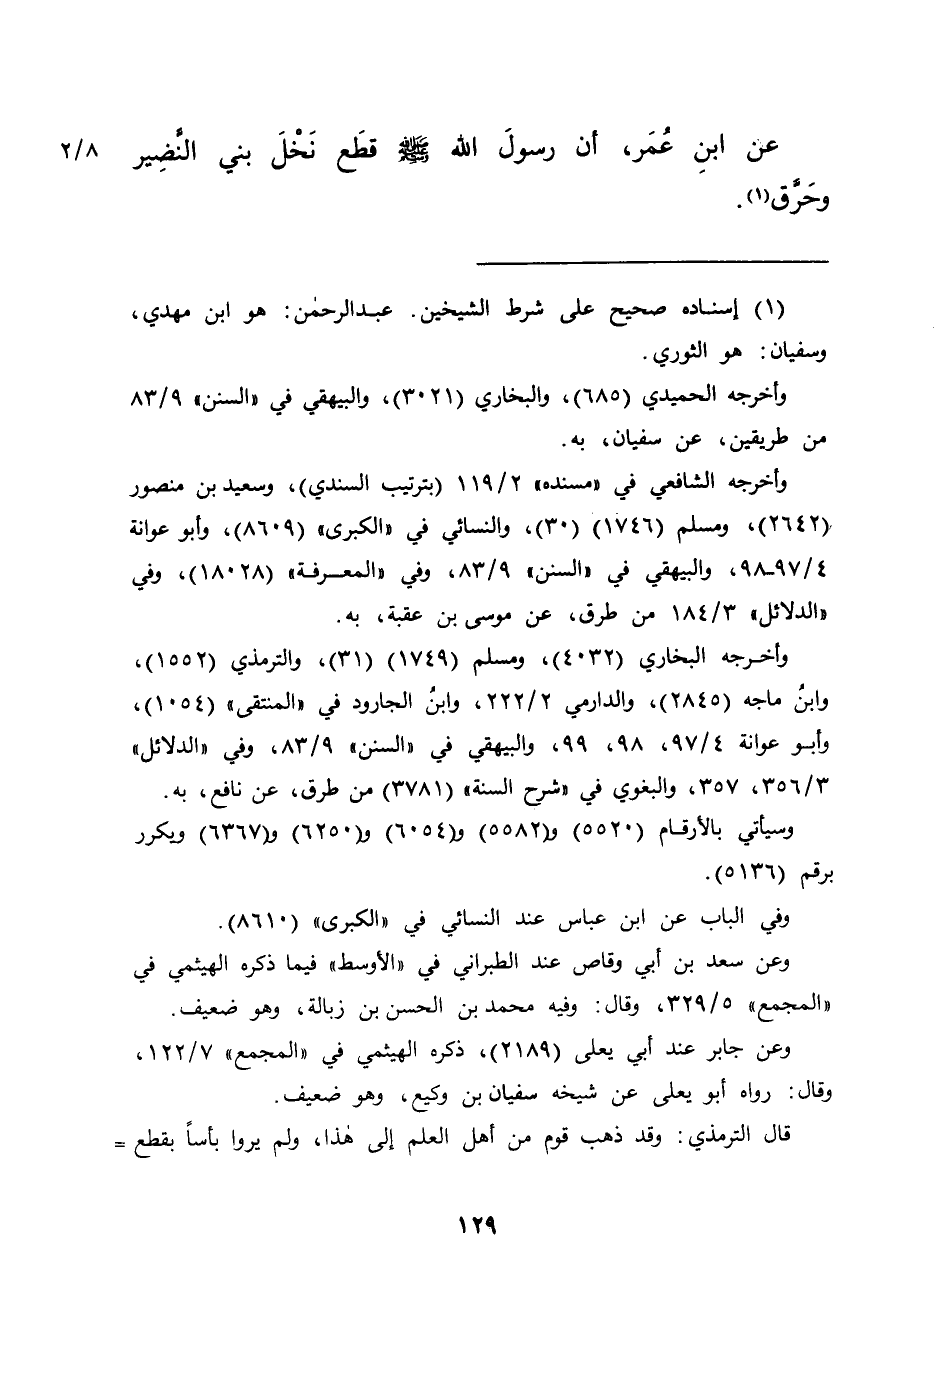 عن ابنِ عُمَر، أن رسولَ الله ﷺ قطَع نَخْلَ بني النَّضِير ٢/٨
وحَرَّق(١).
(١) إسناده صحيح على شرط الشيخين. عبدالرحمٰن: هو ابن مهدي،
وسفيان: هو الثوري.
وأخرجه الحميدي (٦٨٥)، والبخاري (٣٠٢١)، والبيهقي في «السنن» ٨٣/٩
من طريقين، عن سفيان، به.
وأخرجه الشافعي في «مسنده» ١١٩/٢ (بترتيب السندي)، وسعيد بن منصور
(٢٦٤٢)، ومسلم (١٧٤٦) (٣٠)، والنسائي في «الكبرى» (٨٦٠٩)، وأبو عوانة
٩٧/٤-٩٨، والبيهقي في «السنن» ٨٣/٩، وفي «المعرفة» (١٨٠٢٨)، وفي
«الدلائل» ١٨٤/٣ من طرق، عن موسى بن عقبة، به.
وأخرجه البخاري (٤٠٣٢)، ومسلم (١٧٤٩) (٣١)، والترمذي (١٥٥٢)،
وابنُ ماجه (٢٨٤٥)، والدارمي ٢٢٢/٢، وابنُ الجارود في «المنتقى» (١٠٥٤)،
وأبو عوانة ٩٧/٤، ٩٨، ٩٩، والبيهقي في «السنن» ٨٣/٩، وفي «الدلائل»
٣٥٦/٣، ٣٥٧، والبغوي في «شرح السنة» (٣٧٨١) من طرق، عن نافع، به.
وسيأتي بالأرقام (٥٥٢٠) و(٥٥٨٢) و(٦٠٥٤) و(٦٢٥٠) و(٦٣٦٧) ويكرر
برقم (٥١٣٦).
وفي الباب عن ابن عباس عند النسائي في «الكبرى» (٨٦١٠).
وعن سعد بن أبي وقاص عند الطبراني في «الأوسط» فيما ذكره الهيثمي في
«المجمع» ٣٢٩/٥، وقال: وفيه محمد بن الحسن بن زبالة، وهو ضعيف.
وعن جابر عند أبي يعلى (٢١٨٩)، ذكره الهيثمي في «المجمع» ١٢٢/٧،
وقال: رواه أبو يعلى عن شيخه سفيان بن وكيع، وهو ضعيف.
قال الترمذي: وقد ذهب قوم من أهل العلم إلى هٰذا، ولم يروا بأساً بقطع =
١٢٩